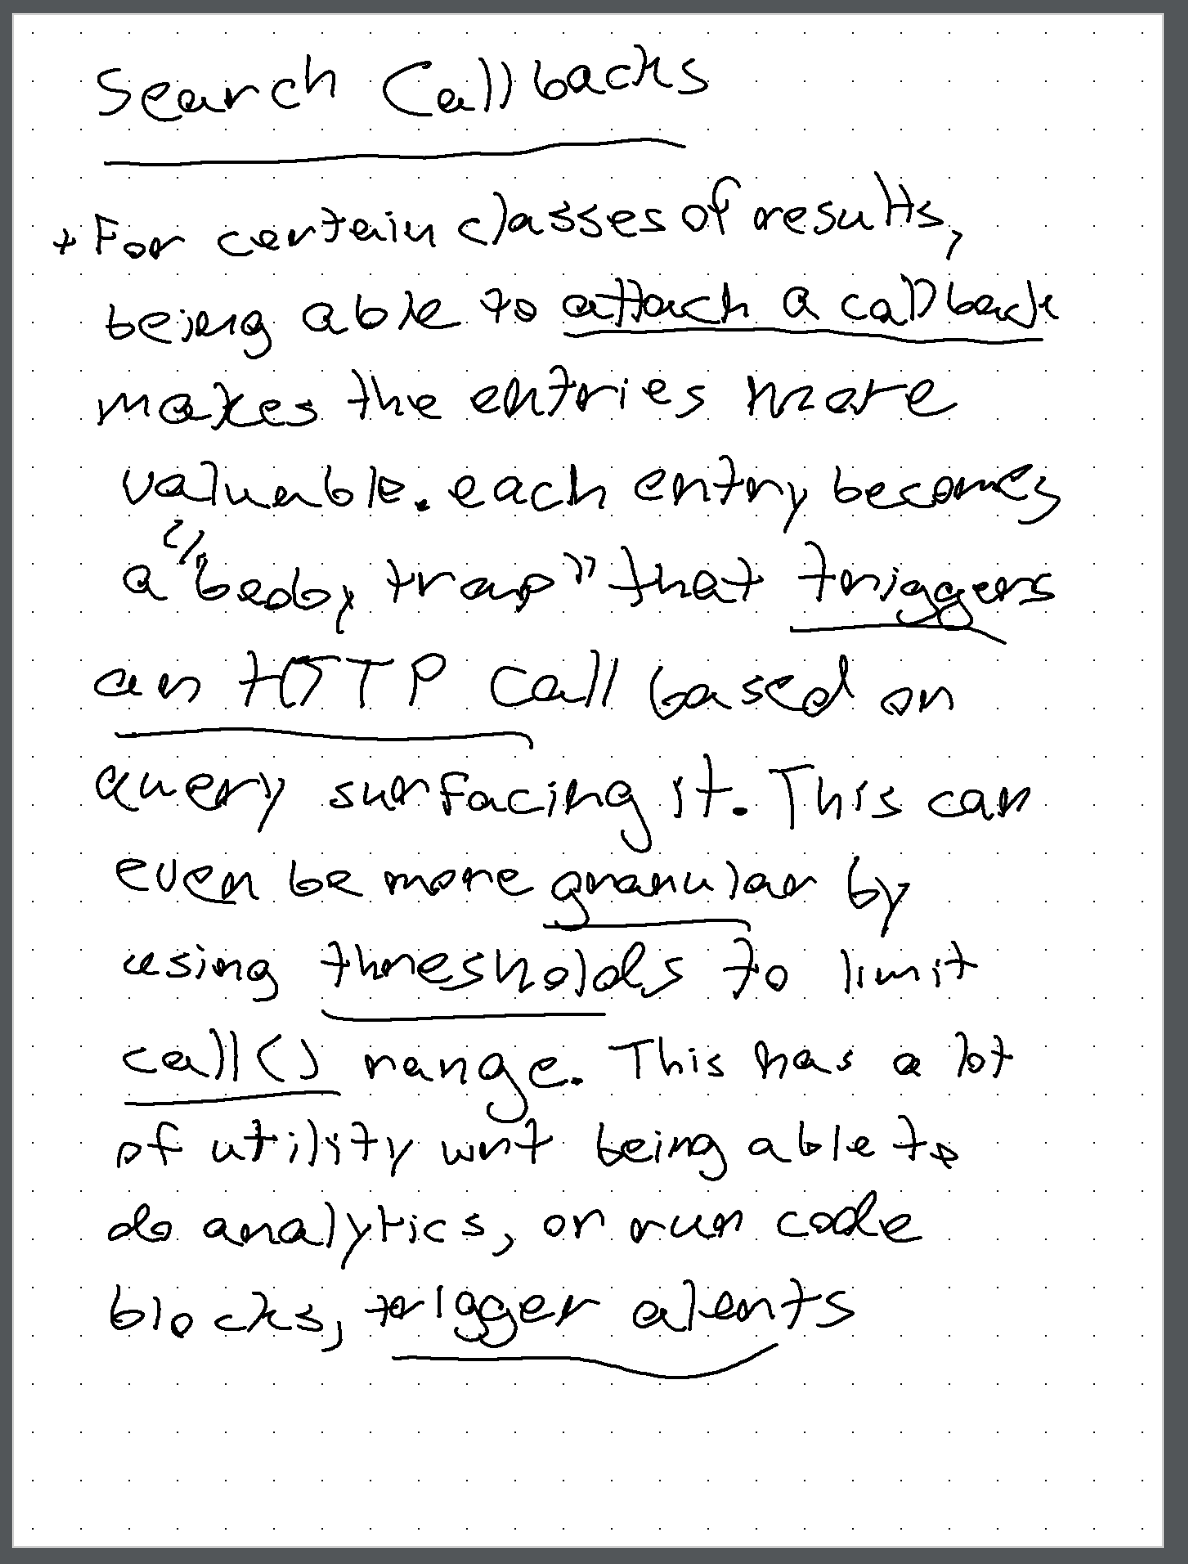 Search Callbacks
+ For certain classes of results,
being able to attach a callback
makes the entries more
valuable. each entry becomes
a "booby trap" that triggers
an HTTP call based on
query surfacing it. This can
even be more granular by
using thresholds to limit
call() range. This has a lot
of utility wrt being able to
do analytics, or run code
blocks, trigger alerts